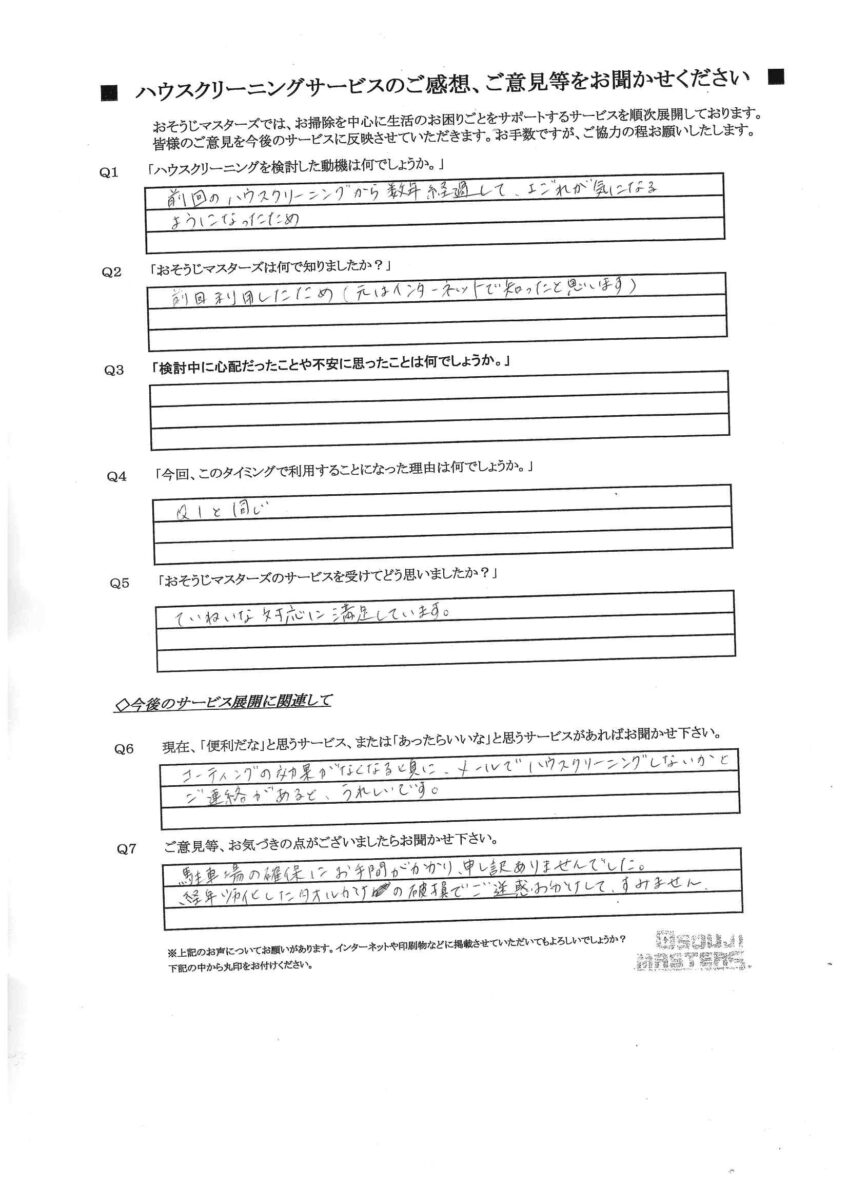 ■ ハウスクリーニングサービスのご感想、ご意見等をお聞かせください ■
おそうじマスターズでは、お掃除を中心に生活のお困りごとをサポートするサービスを順次展開しております。
皆様のご意見を今後のサービスに反映させていただきます。お手数ですが、ご協力の程お願いいたします。
Q1 「ハウスクリーニングを検討した動機は何でしょうか。」
前回のハウスクリーニングから数年経過して、よごれが気になる
ようになったため
Q2 「おそうじマスターズは何で知りましたか？」
前回利用したため(元はインターネットで知ったと思います)
Q3 「検討中に心配だったことや不安に思ったことは何でしょうか。」
Q4 「今回、このタイミングで利用することになった理由は何でしょうか。」
Q1と同じ
Q5 「おそうじマスターズのサービスを受けてどう思いましたか？」
ていねいな対応に満足しています。
◇今後のサービス展開に関連して
Q6 現在、「便利だな」と思うサービス、または「あったらいいな」と思うサービスがあればお聞かせ下さい。
コーティングの効果がなくなる頃に、メールでハウスクリーニングしないかと
ご連絡があると、うれしいです。
Q7 ご意見等、お気づきの点がございましたらお聞かせ下さい。
駐車場の確保にお手間がかかり、申し訳ありませんでした。
経年劣化したタオルかけの破損でご迷惑おかけして、すみません.
※上記のお声についてお願いがあります。インターネットや印刷物などに掲載させていただいてもよろしいでしょうか？
下記の中から丸印をお付けください。
OSOUJI
MASTERS.